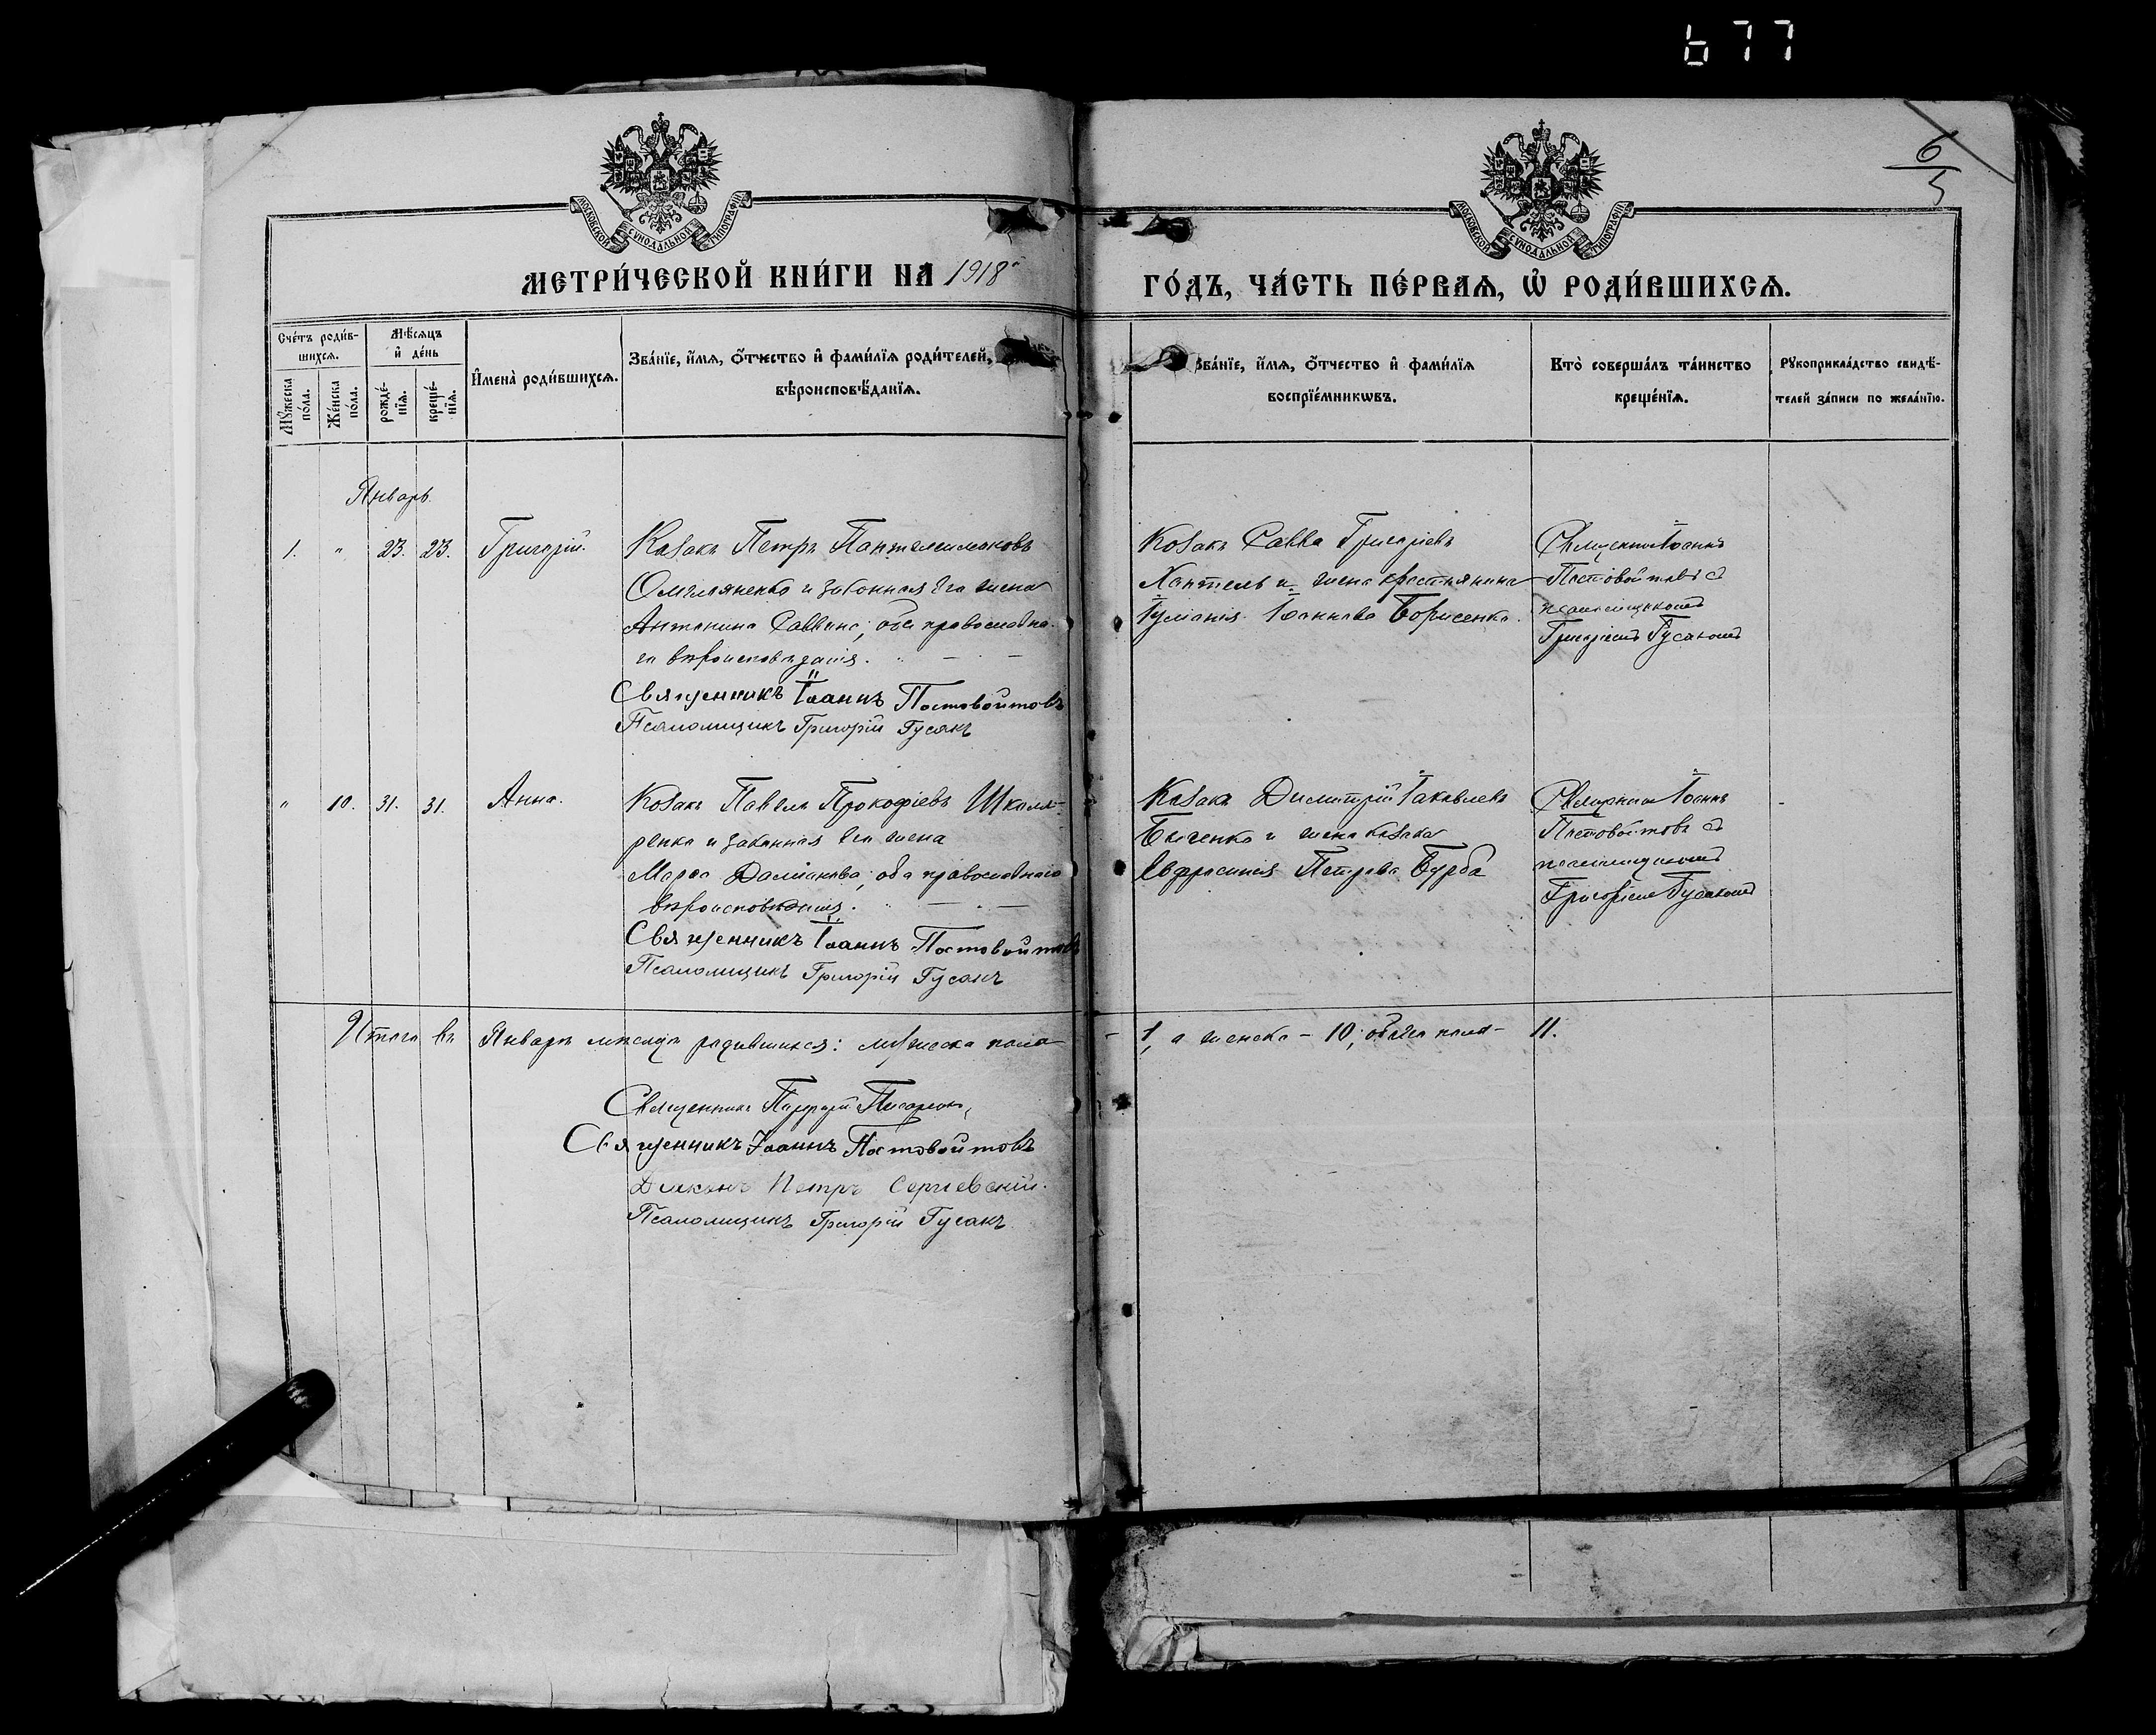 677
6
5
МОСКОВСКОЙ СУНОДАЛЬНОЙ ТИПОГРАФІИ
МОСКОВСКОЙ СУНОДАЛЬНОЙ ТИПОГРАФІИ
МЕТРИ́ЧЕСКОЙ КНИ́ГИ НА 1918
ГО́ДЪ, ЧА́СТЬ ПЕ́РВАѦ, Ѡ҆ РОДИ́ВШИХСѦ.
Сче́тъ роди́в-
шихсѧ.
Мѣ́сѧцъ
и҆ де́нь
Мꙋ́жеска по́ла.
Же́нска по́ла.
рожде́-
нїѧ.
креще́-
нїѧ.
И҆мена̀ роди́вшихсѧ.
Зва́нїе, и҆́мѧ, ѻ҆́тчество и҆ фами́лїѧ роди́телей,
вѣроисповѣ́данїѧ.
Зва́нїе, и҆́мѧ, ѻ҆́тчество и҆ фами́лїѧ
воспрїе́мникѡвъ.
Кто̀ соверша́лъ та́инство
креще́нїѧ.
Рꙋкоприкла́дство свидѣ́-
телей за́писи по жела́нїю.
Январь
1. " 23. 23. Григорій.
Козакъ Петръ Пантелеимоновъ
Омельяненко и законная его жена
Антонина Саввина; оба православна-
го вѣроисповѣданія.
Священникъ Іоаннъ Постовойтовъ
Псаломщикъ Григорій Гусакъ
Козакъ Савва Григоріевъ
и жена крестьянина
Іуліанія Іоаннова Борисенко.
Священникъ Іоаннъ
Постовойтовъ съ
псаломщикомъ
Григоріемъ Гусакомъ
" 10. 31. 31. Анна.
Козакъ Павелъ Прокофіевъ Школя-
ренко и законная его жена
Марѳа Даміанова; оба православнаго
вѣроисповѣданія.
Священникъ Іоаннъ Постовойтовъ
Псаломщикъ Григорій Гусакъ
Козакъ Димитрій Іаковлевъ
и жена козака
Евфросинія Петрова Бурба
Священникъ Іоаннъ
Постовойтовъ съ
псаломщикомъ
Григоріемъ Гусакомъ
Итого въ Январѣ мѣсяцѣ родившихся: мужеска пола
- 1, а женска - 10; обоего пола - 11.
Священникъ
Священникъ Іоаннъ Постовойтовъ
Діаконъ Петръ Сергіевскій.
Псаломщикъ Григорій Гусакъ